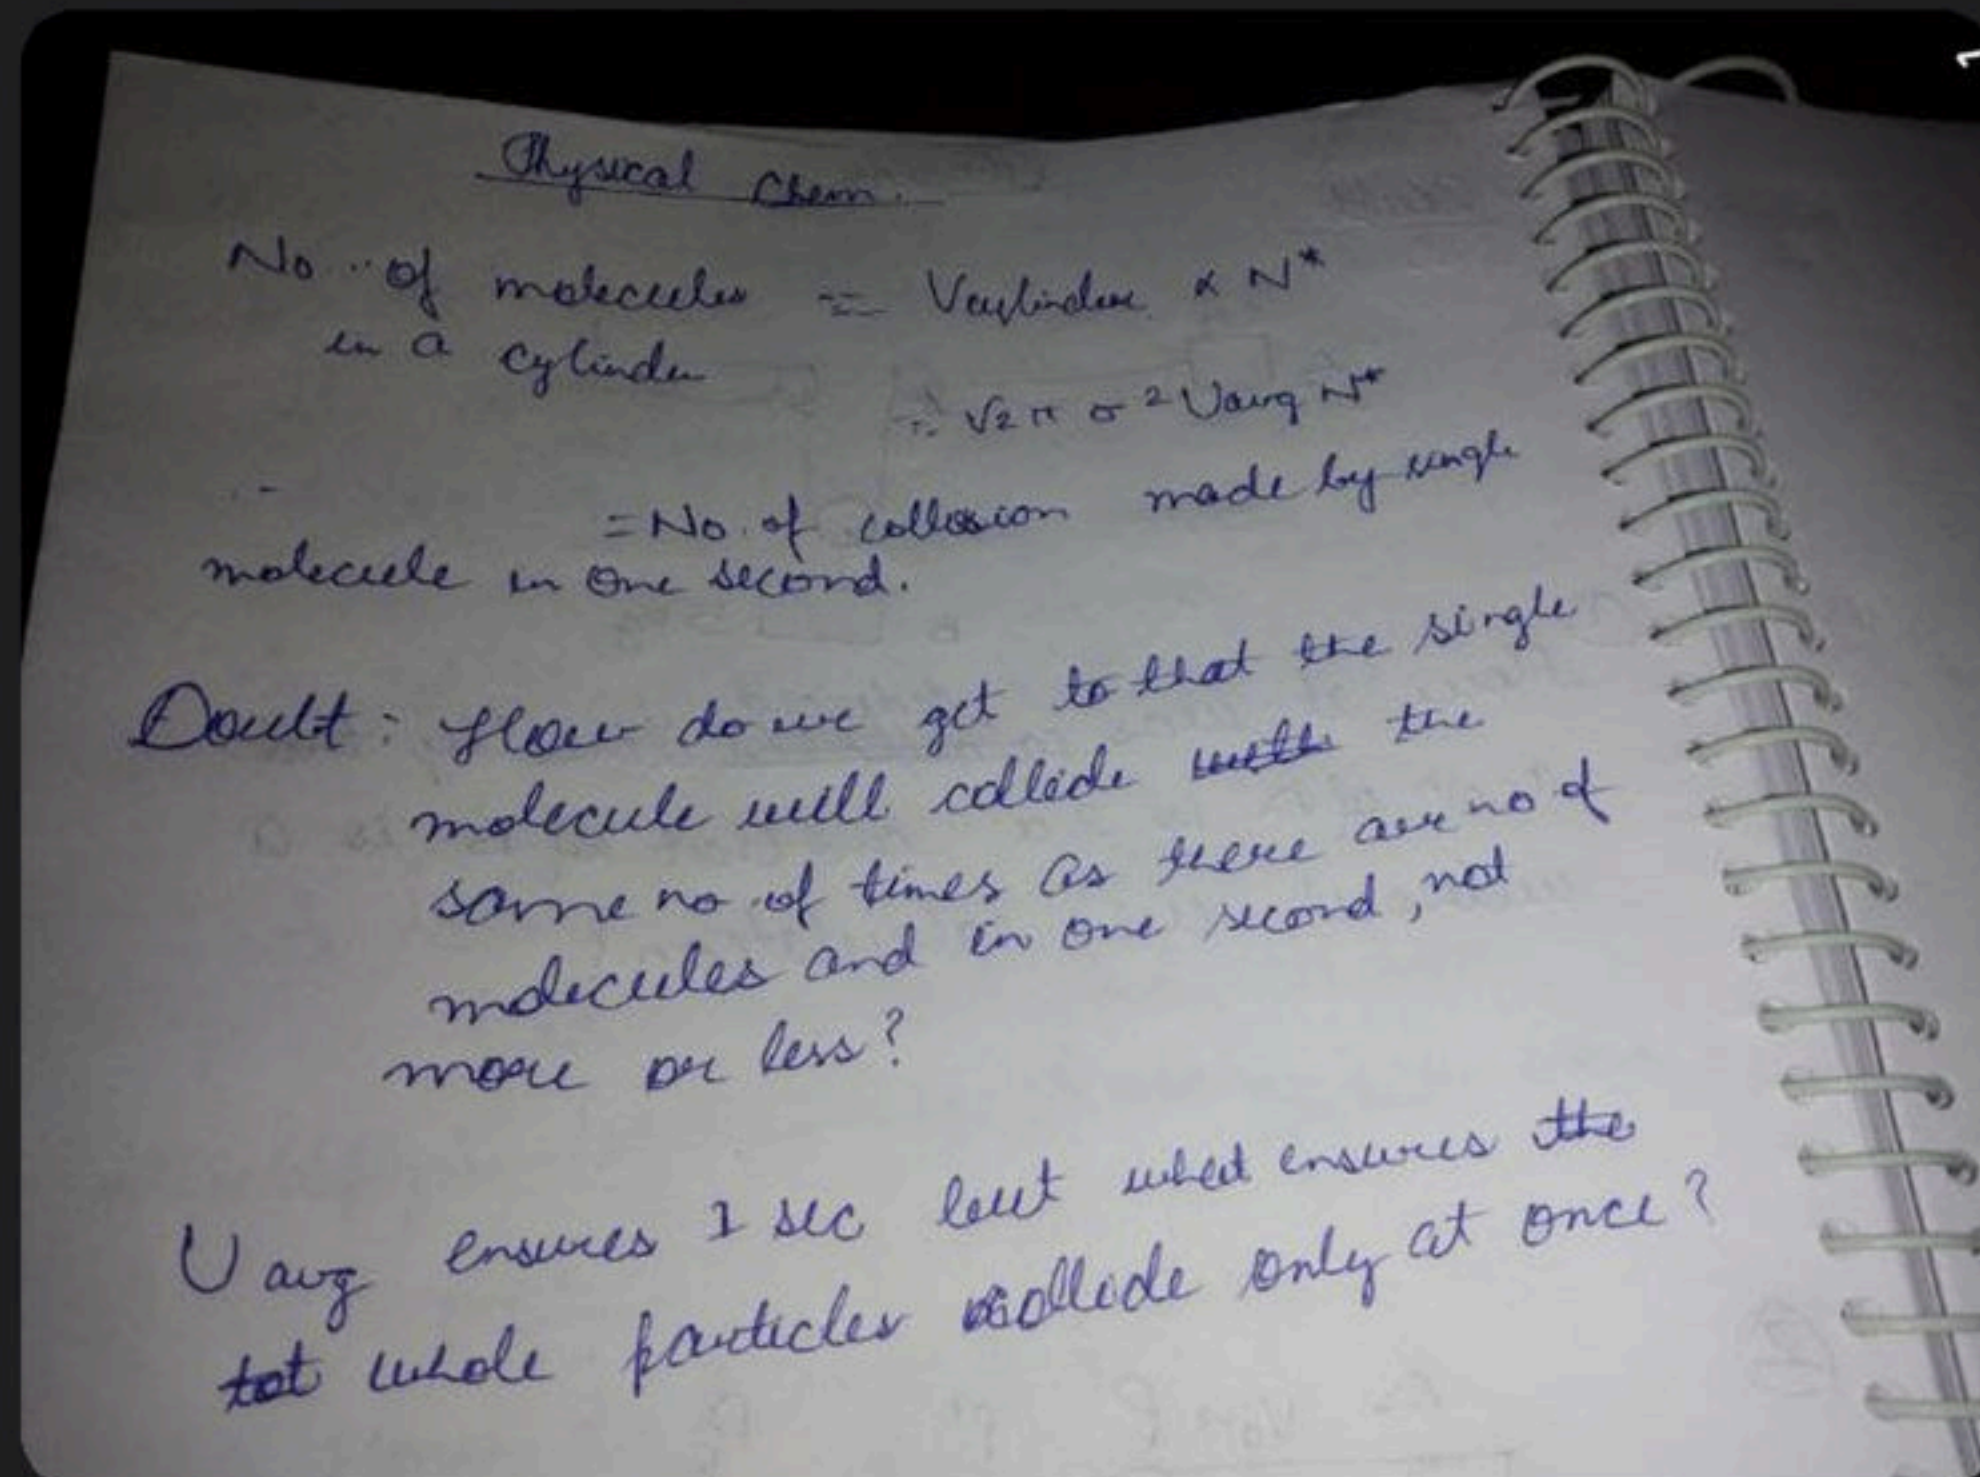 Physical Chem.
No. of molecules = Vcylinder × N*
in a cylinder
= √2 π σ² Uavg N*
= No. of collosion made by single
molecule in one second.
Doubt: How do we get to that the single
molecule will collide with the
same no. of times as there are no of
molecules and in one second, not
more or less?
U avg ensures 1 sec but what ensures the
tot whole particles collide only at once?